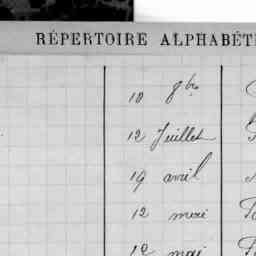 RÉPERTOIRE ALPHABÉT
10 8bre
12 Juillet
19 avril
12 mai
12 mai